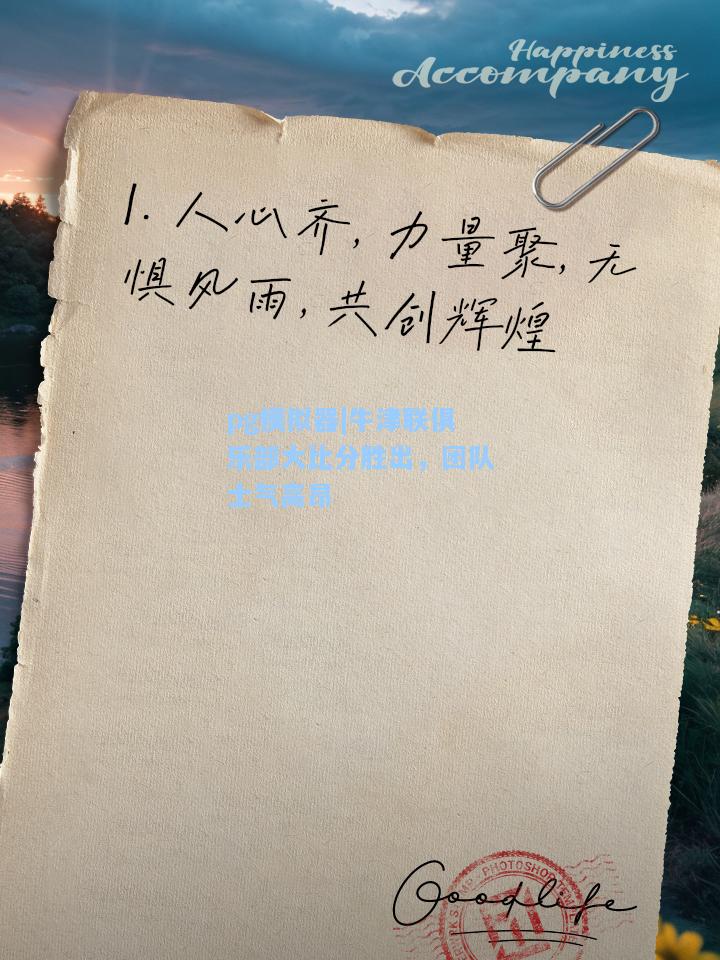 Happiness
Accompany
1. 人心齐, 力量聚, 无
惧风雨, 共创辉煌
pg模拟器|牛津联俱
乐部大比分胜出，团队
士气高昂
Goodlife
PHOTOSHOP